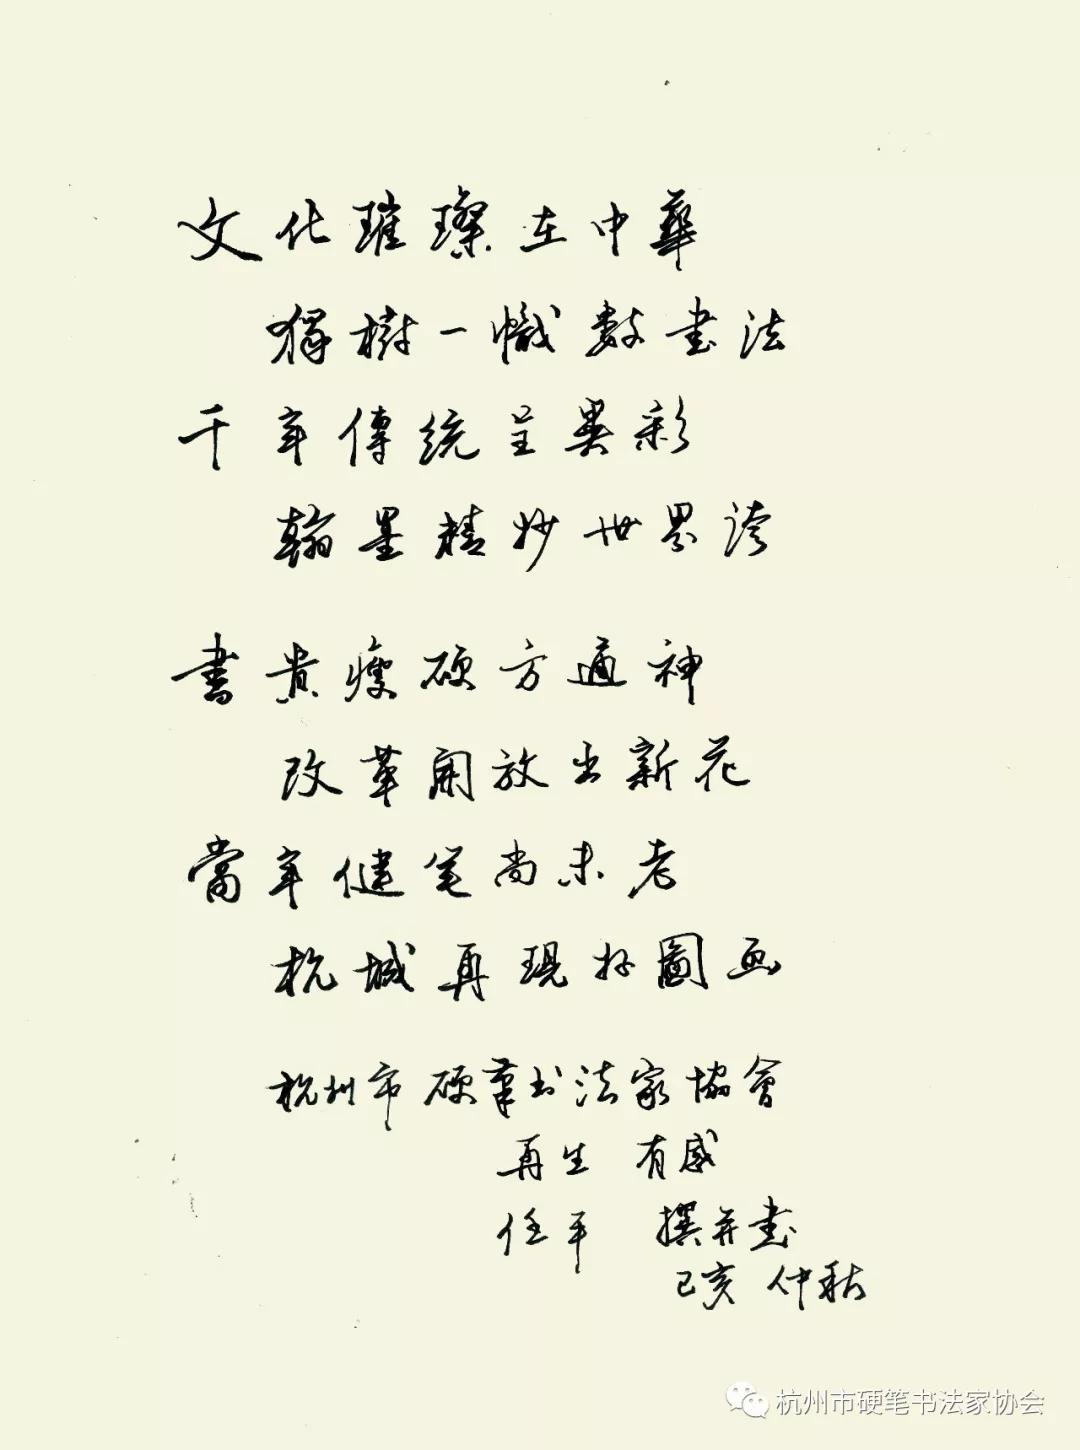 文化璀璨在中華
獨樹一幟數书法
千年傳統呈異彩
翰墨精妙世界誇
書貴瘦硬方通神
改革開放出新花
當年健笔尚未老
杭城再現好圖画
杭州市硬筆书法家協會
再生 有感
任平 撰并书
己亥 仲秋
杭州市硬笔书法家协会